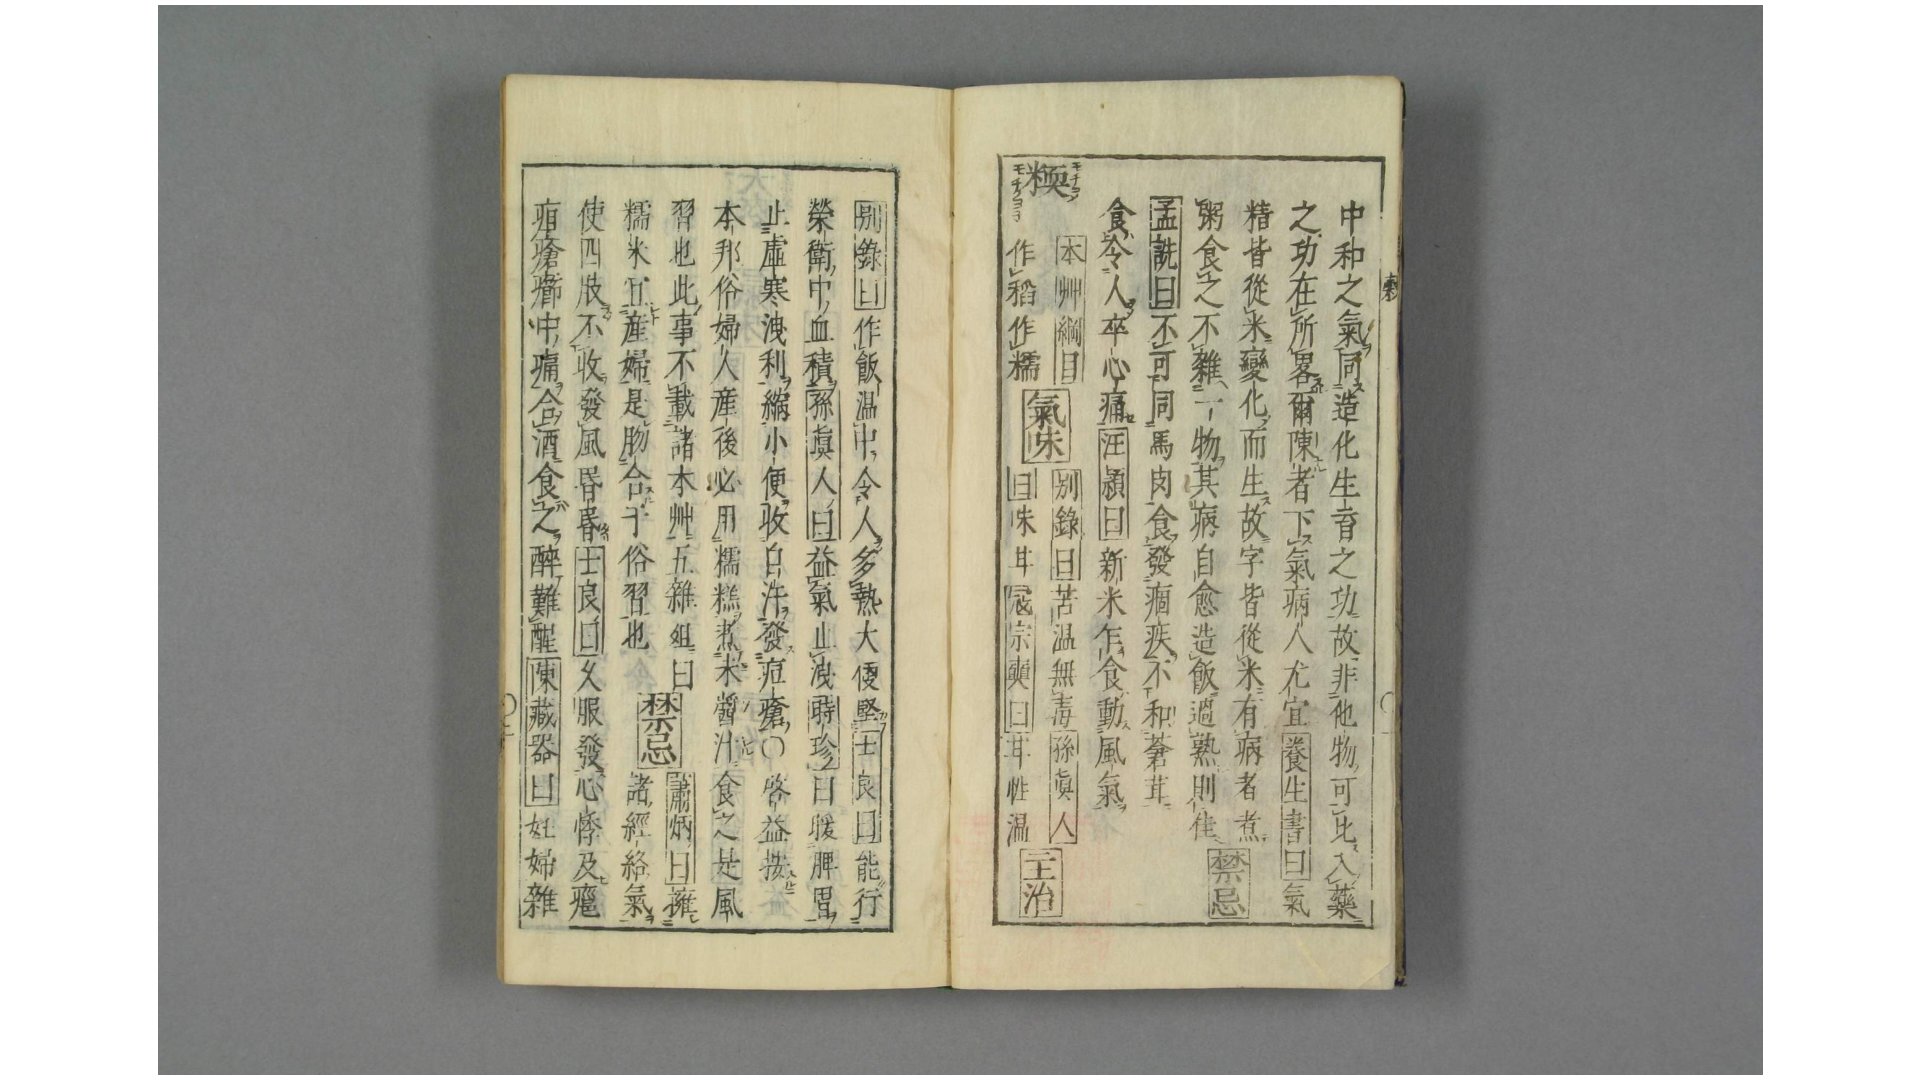 中和之氣同造化生育之功故非他物可比入藥
之功在所畧爾陳者下氣病人尤宜養生書曰氣
精皆從米變化而生故字皆從米有病者煮
粥食之不雜一物其病自愈造飯過熟則佳 禁忌
孟詵曰不可同馬肉食發痼疾不和蒼茸
食令人卒心痛汪頴曰新米乍食動風氣
糯 モチヨ子
本艸綱目作稻作糯 氣味 別錄曰苦温無毒孫眞人
曰味甘冦宗奭曰甘性温 主治
別錄曰作飯温中令人多熱大便堅士良曰能行
榮衛中血積孫眞人曰益氣止洩時珍曰暖脾胃
止虛寒洩利縮小便收自汗發痘瘡〇啓益按
本邦俗婦人産後必用糯糕煮末醬汁食之是風
習也此事不載諸本艸五雜俎曰 蕭炳曰擁
糯米宜産婦是脗合于俗習也 禁忌 諸經絡氣
使四肢不收發風昏昏士良曰久服發心悸及癰
疽瘡癤中痛合酒食之醉難醒陳藏器曰妊婦雜